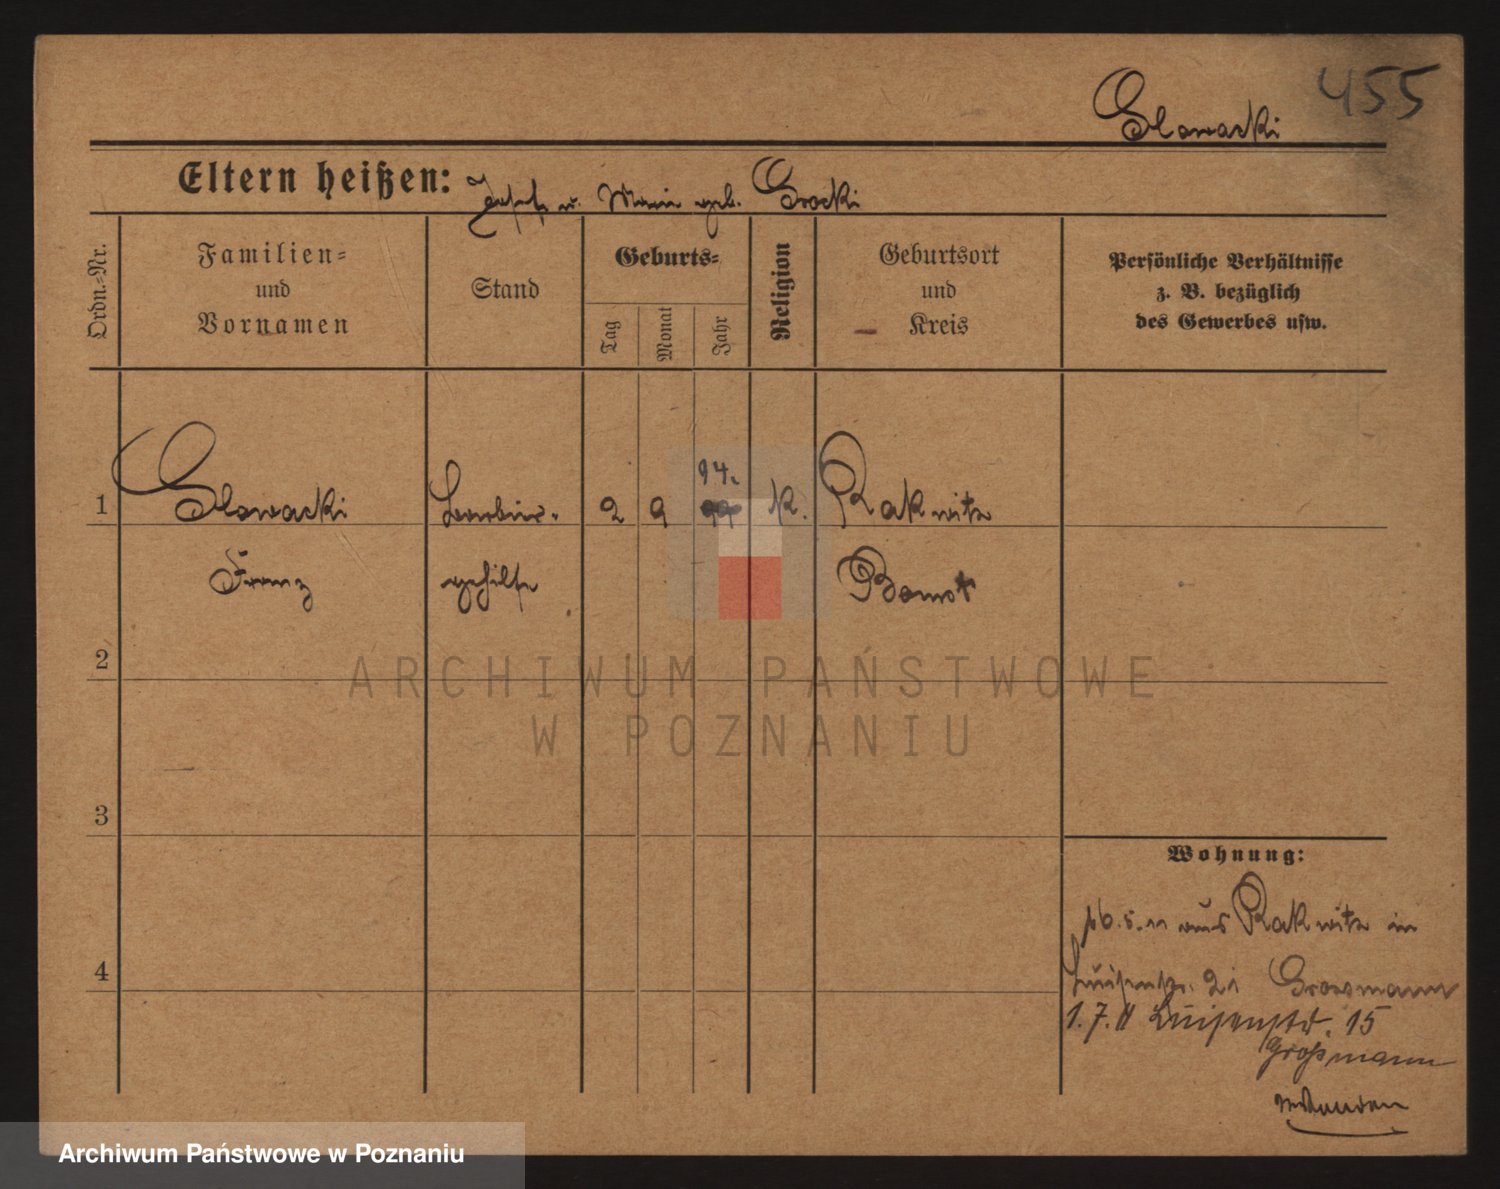 455
Slowacki
Eltern heißen: Josef u. Marie geb. Grocki
Ordn.-Nr.
Familien- und Vornamen
Stand
Geburts-
Tag
Monat
Jahr
Religion
Geburtsort und Kreis
Persönliche Verhältnisse
z. B. bezüglich
des Gewerbes usw.
94.
1 Slowacki Barbier- 2 9 99 K. Rakwitz
Franz gehilfe Bomst
2
3
4
ARCHIWUM PAŃSTWOWE
W POZNANIU
Wohnung:
aus Rakwitz in
Luisenstr. 21 Grossmann
1.7.11 Luisenstr. 15
Großmann
Archiwum Państwowe w Poznaniu